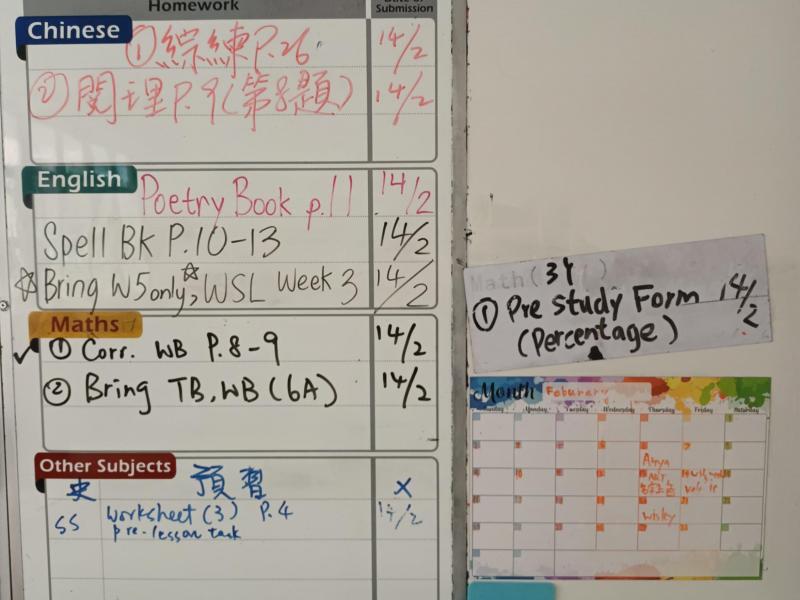 Homework
Date of Submission
Chinese
① 綜練 P.26 14/2
② 閱理 P.9 (第8題) 14/2
English
Poetry Book p.11 14/2
Spell BK P.10-13 14/2
☆ Bring W5 only, ☆ WSL Week 3 14/2
Maths
✓ ① Corr. WB P.8-9 14/2
② Bring TB, WB (6A) 14/2
Other Subjects
史 預習 X
SS Worksheet (3) P.4 14/2
pre-lesson task
Math (34)
① Pre Study Form 14/2
(Percentage)
Month Feburary
Sunday Monday Tuesday Wednesday Thursday Friday Saturday
Wisky